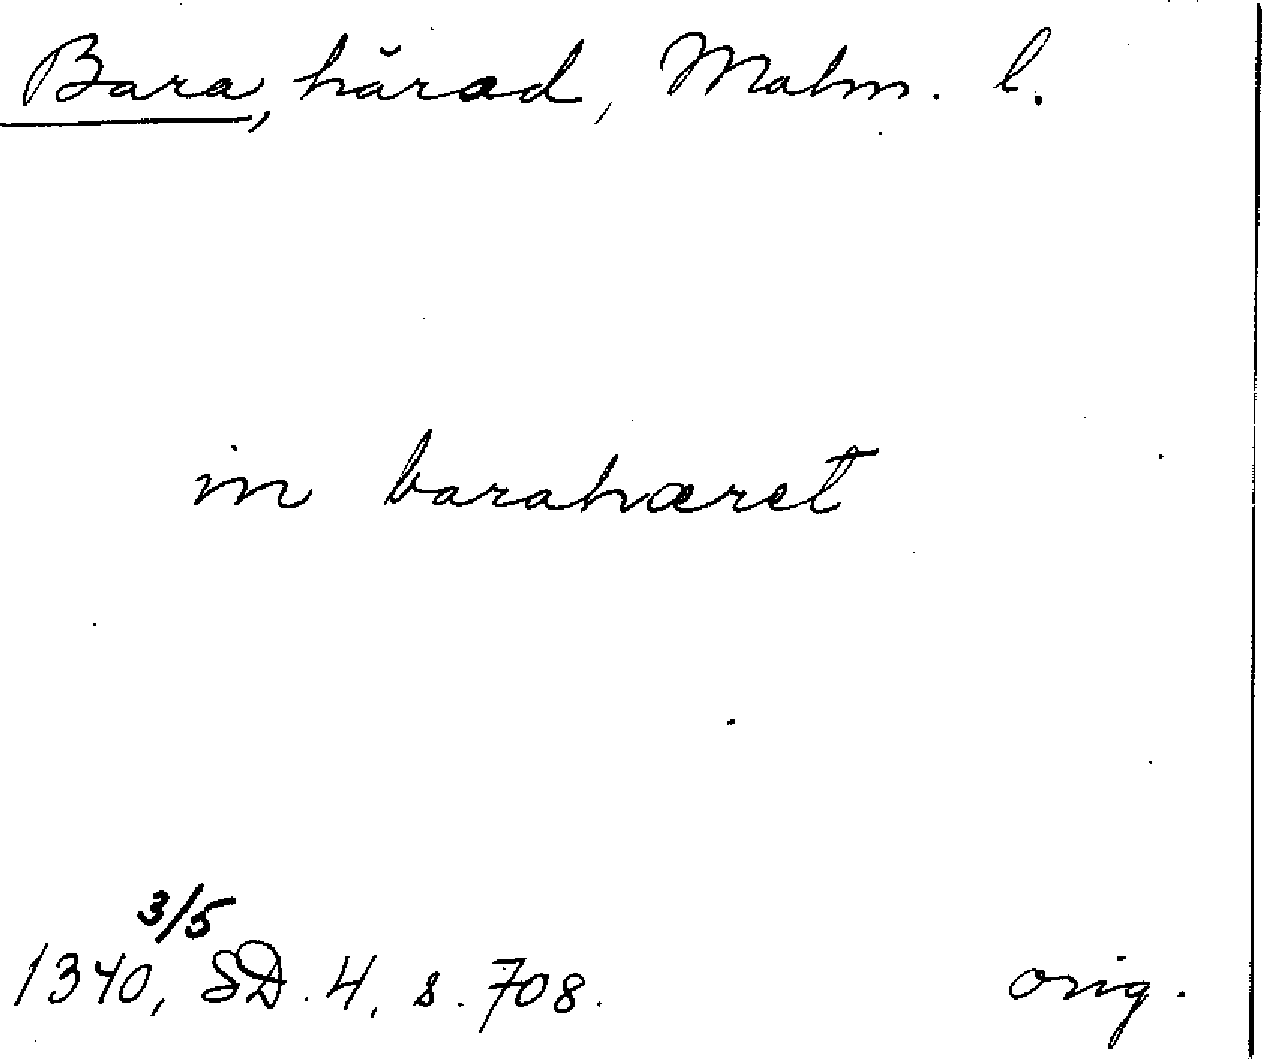 Bara, härad, Malm. l.
in barahæret
3/5
1340, SD. 4, s. 708. orig.